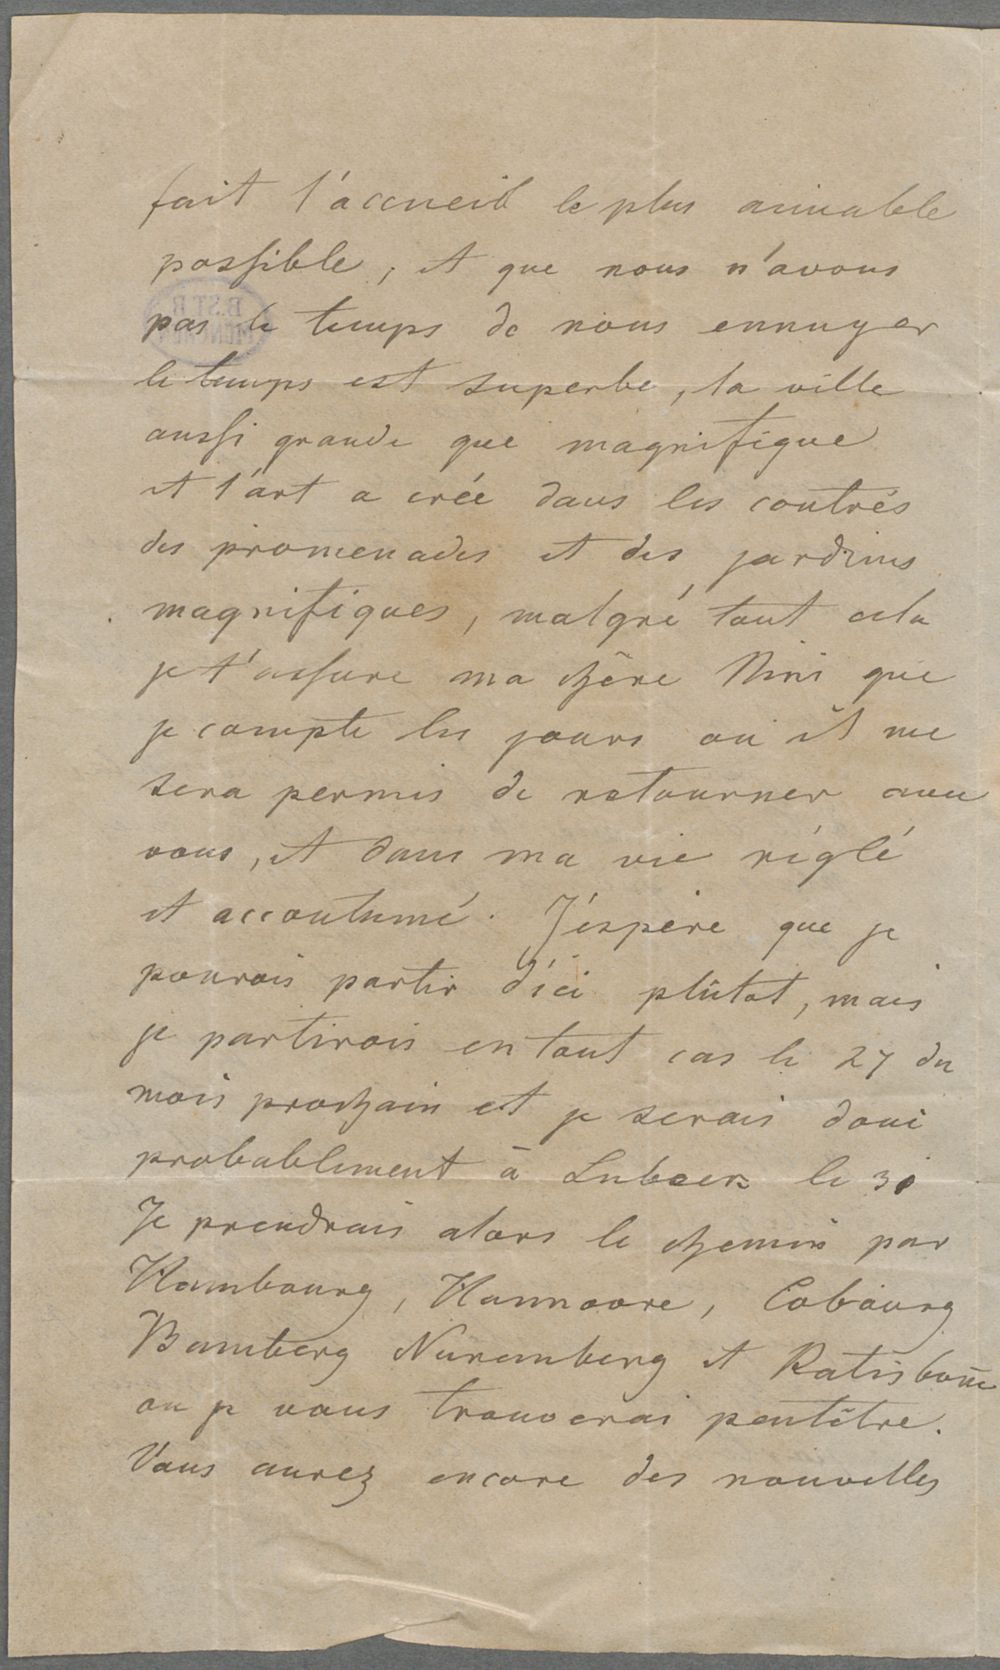 fait l'accueil le plus aimable
possible, et que nous n'avons
pas le temps de nous ennuyer
le temps est superbe, la ville
aussi grande que magnifique
et l'art a crée dans les contrés
des promenades et des jardins
magnifiques, malgré tout cela
je t'assure ma chère Nini que
je compte les jours où il me
sera permis de retourner avec
vous, et dans ma vie réglé
et accoutumé. J'éspère que je
pourais partir d'ici plûtot, mais
je partirais en tout cas le 27 du
mois prochain et je serais donc
probablement à Lubeck le 30
Je prendrais alors le chemin par
Hambourg, Hannovre, Cobourg
Bamberg Nuremberg et Ratisbonne
ou je vous trouverai peutêtre.
Vous aurez encore des nouvelles